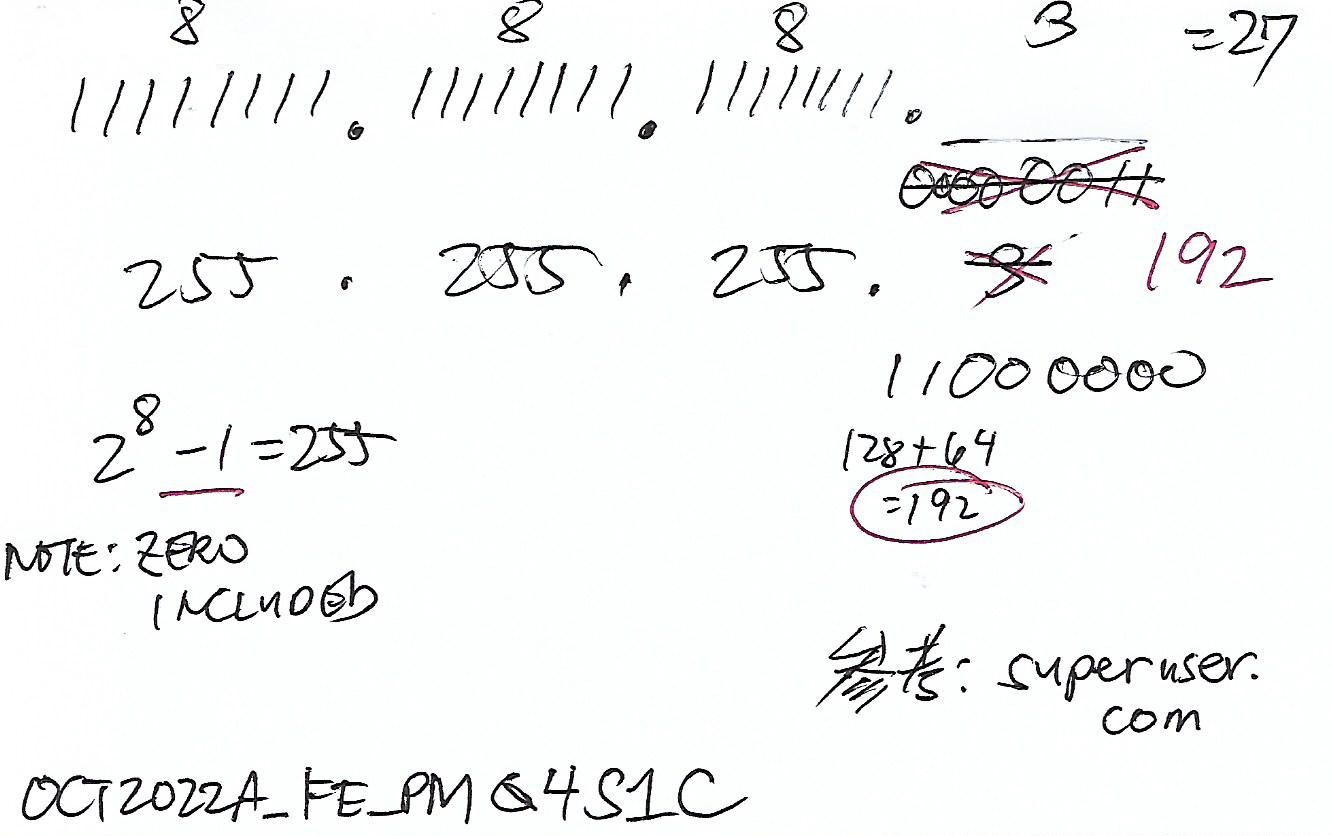 8 8 8 3 =27
11111111. 11111111. 11111111.
00000011
255 . 255 . 255 . 3 192
11000000
2^8 -1 = 255
128+64
=192
NOTE: ZERO
INCLUDED
参考: superuser.
com
OCT2022A_FE_PM Q4S1C